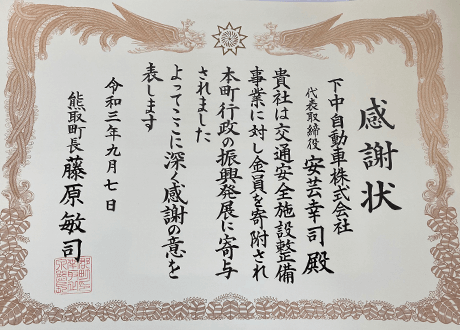 感謝状
下中自動車株式会社
代表取締役 安芸幸司殿
貴社は交通安全施設整備
事業に対し金員を寄附され
本町行政の振興発展に寄与
されました
よってここに深く感謝の意を
表します
令和三年九月七日
熊取町長 藤原敏司